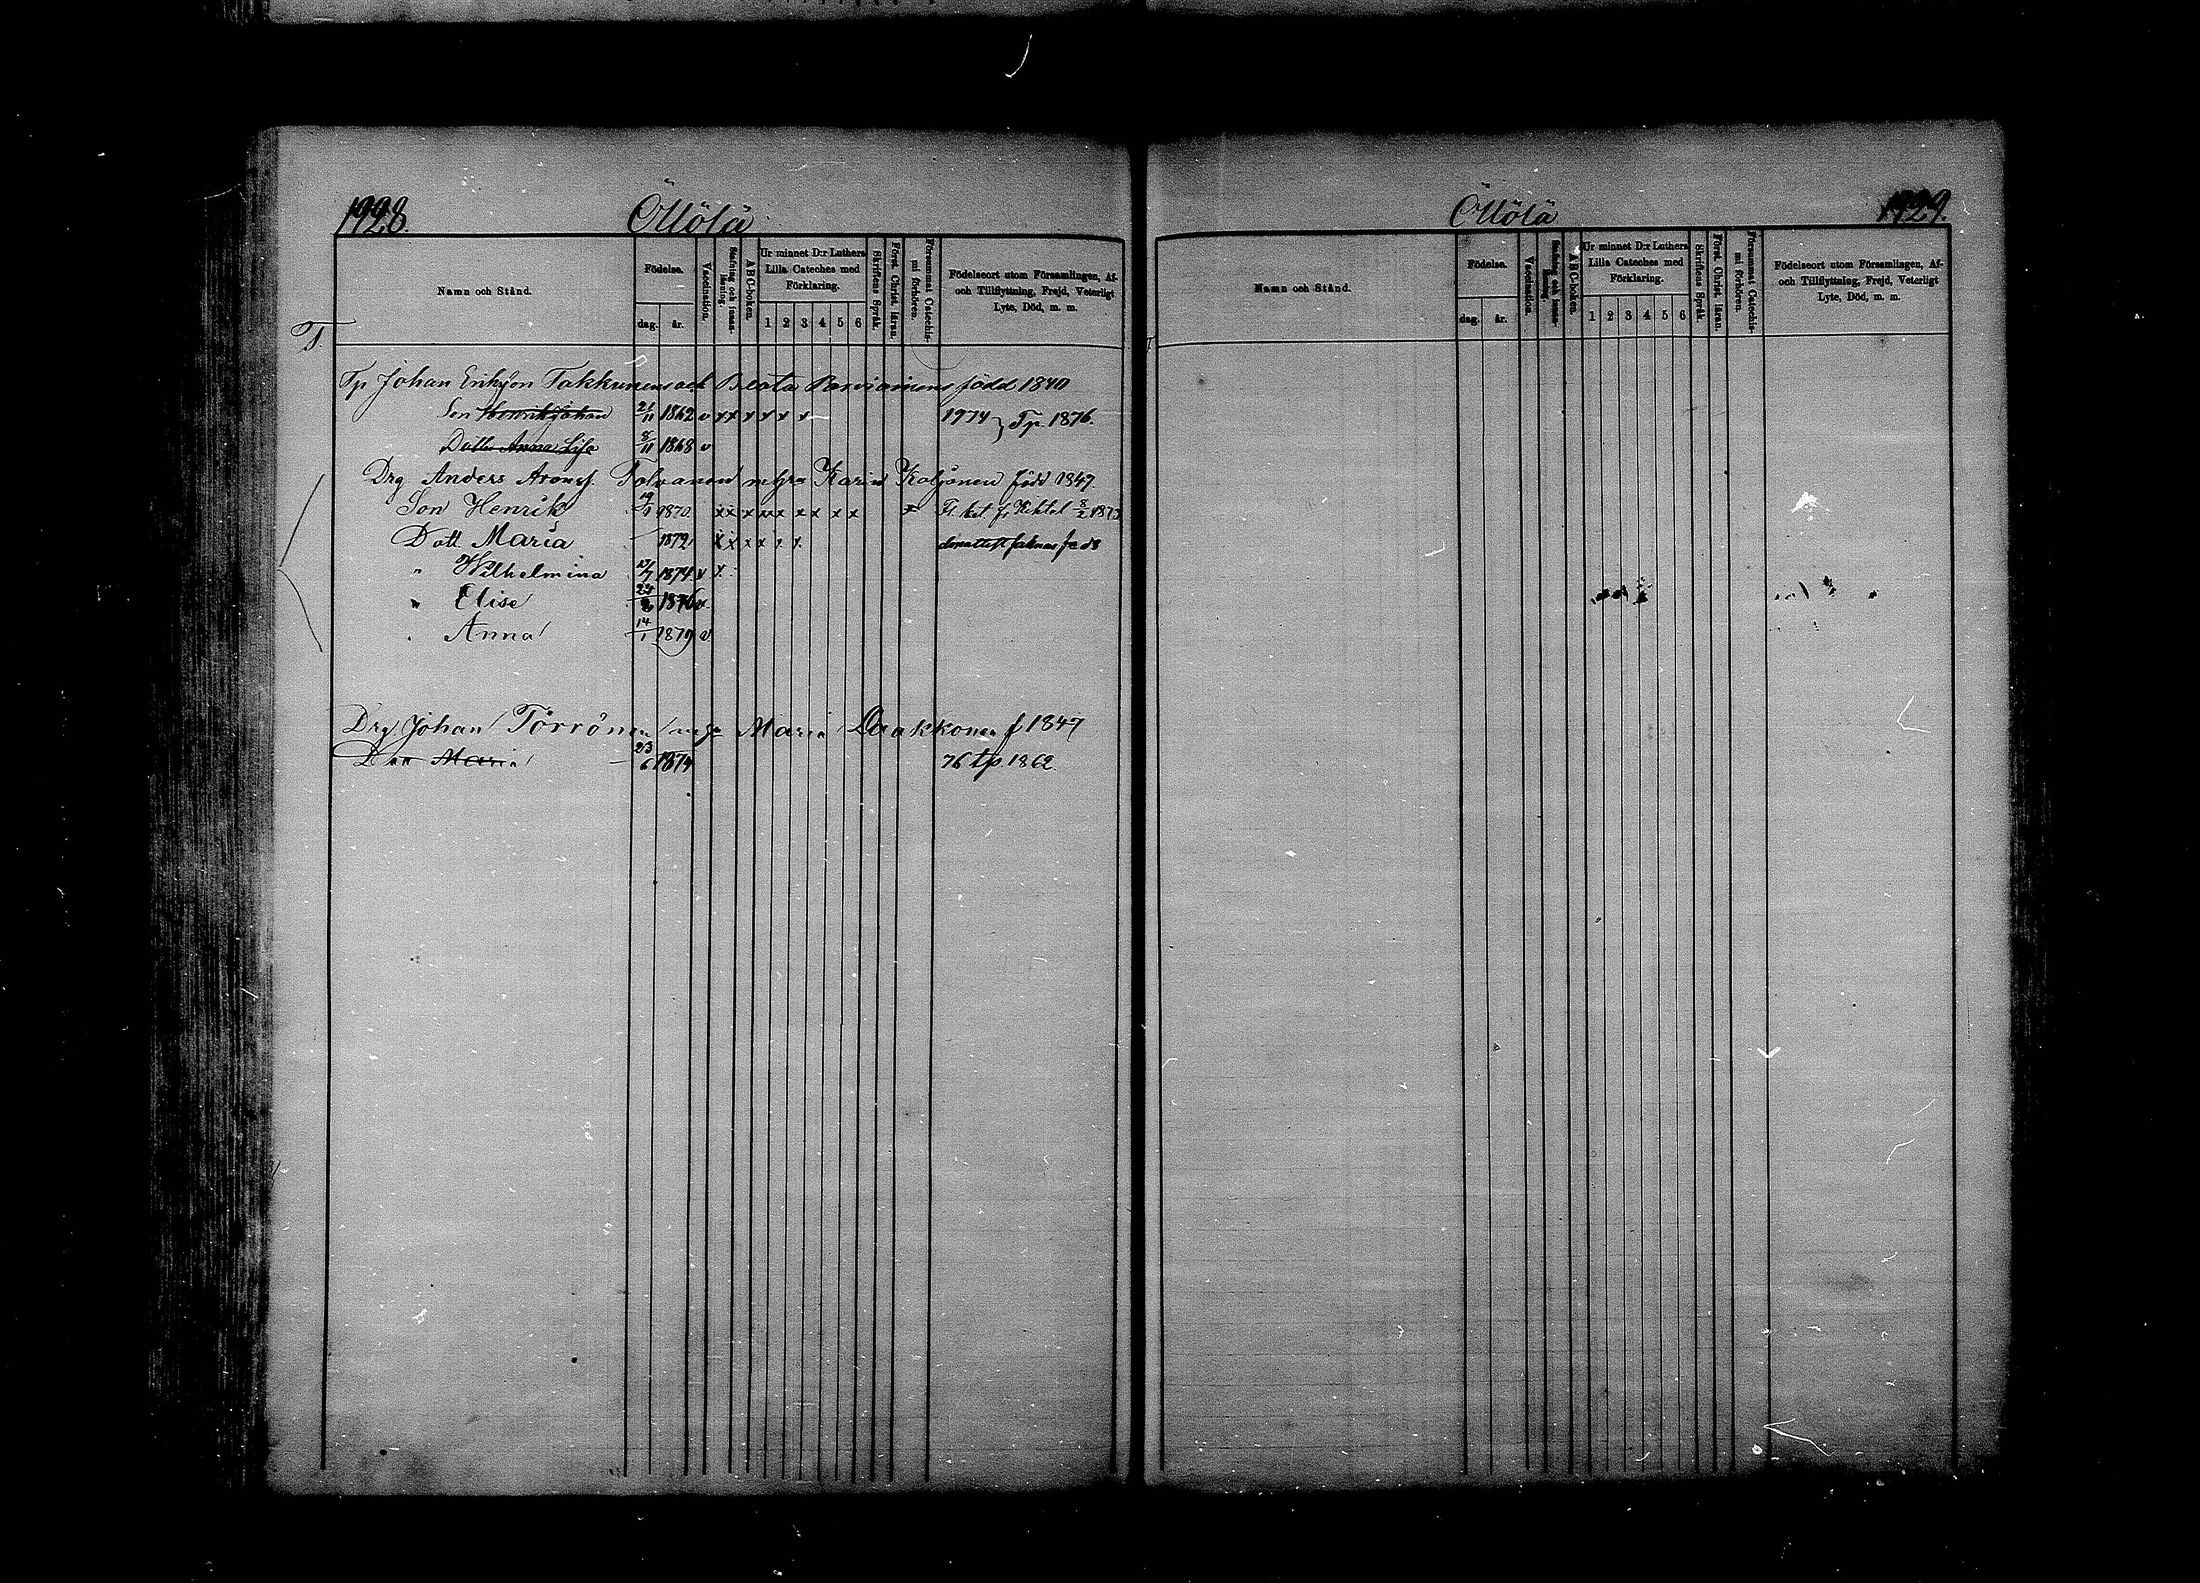 1928.
Öllölä
Namn och Stånd.
Födelse.
dag.
år.
Vaccination.
Stafning och innanläsning.
ABC-boken.
Ur minnet D:r Luthers Lilla Cateches med Förklaring.
1 2 3 4 5 6
Skriftens Språk.
Först. Christ. läran.
Försummat Catechismi förhören.
Födelseort utom Församlingen, Af- och Tillflyttning, Frejd, Veterligt Lyte, Död, m. m.
T.
Tp Johan Eriksson Takkunens och Beata Parviainens född 1840
Son Henrik Johan 21/11 1862 v x x x x x x 1974 } Tp. 1876.
Dott Anna Lisa 8/11 1868 v
Drg Anders Aronss. Tolvanen m hru Karin Koljonen född 1847
Son Henrik 1870. x x x x x x x x x 8/2 1873
Dott. Maria 1872 x x x x x x
" Wilhelmina 1874 v x
" Elise 1876 v
" Anna 14/1 1879 v
Drg Johan Törrönen Maria Laakkonen f 1847
Dott Maria 23/6 1874 76 tp. 1862.
Öllölä
1929.
Namn och Stånd.
Födelse.
dag.
år.
Vaccination.
Stafning och innanläsning.
ABC-boken.
Ur minnet D:r Luthers Lilla Cateches med Förklaring.
1 2 3 4 5 6
Skriftens Språk.
Först. Christ. läran.
Försummat Catechismi förhören.
Födelseort utom Församlingen, Af- och Tillflyttning, Frejd, Veterligt Lyte, Död, m. m.